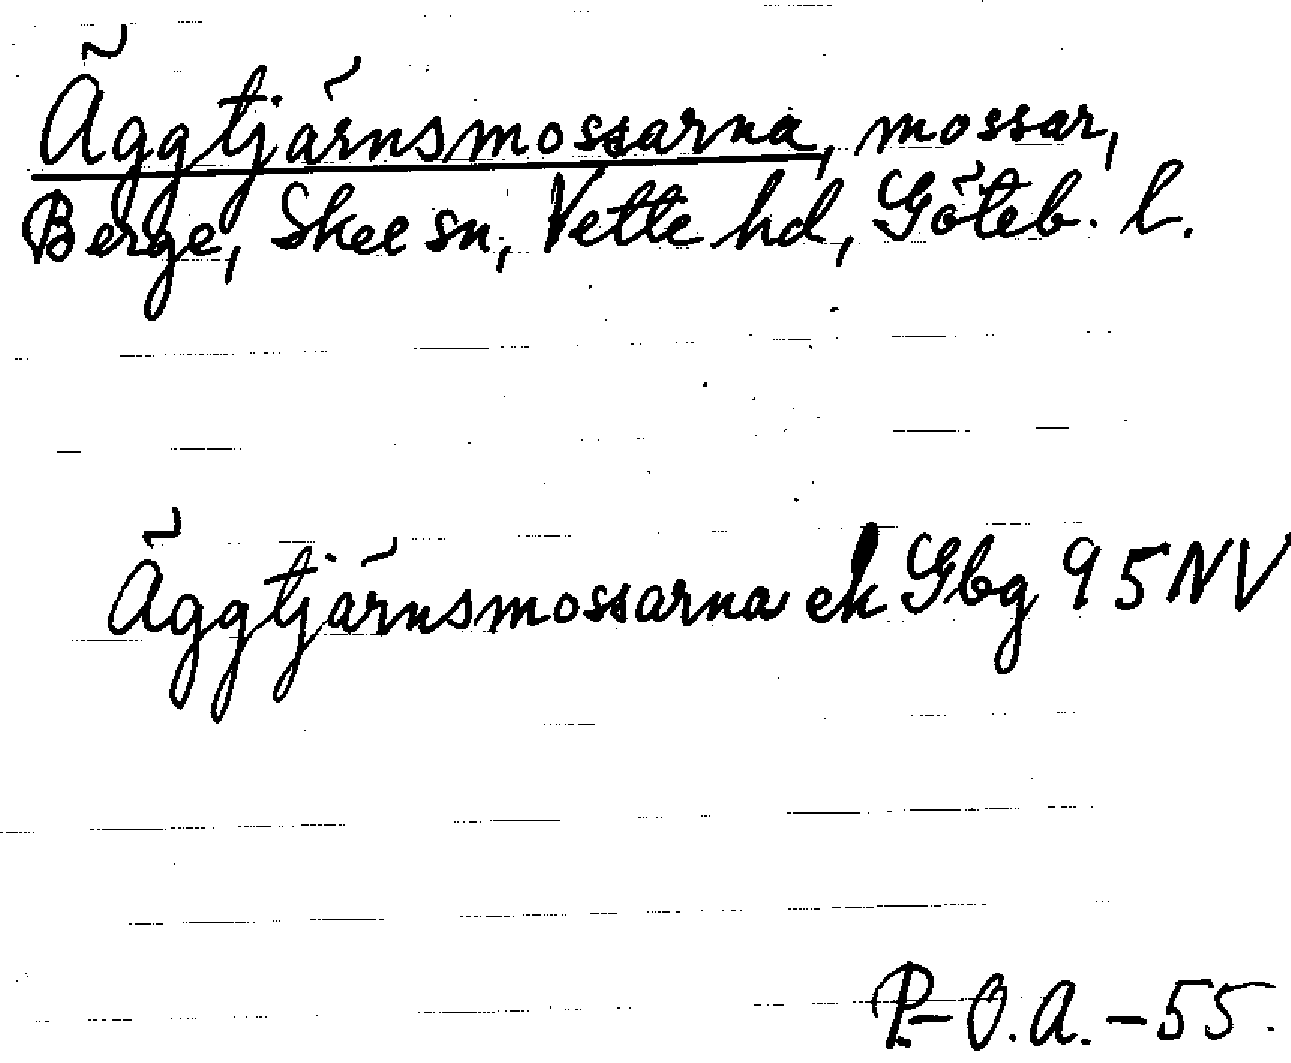 Äggtjärnsmossarna, mossar,
Berge, Skee sn, Vette hd, Göteb. l.
Äggtjärnsmossarna ek Gbg 95 NV
P-O.A.-55.